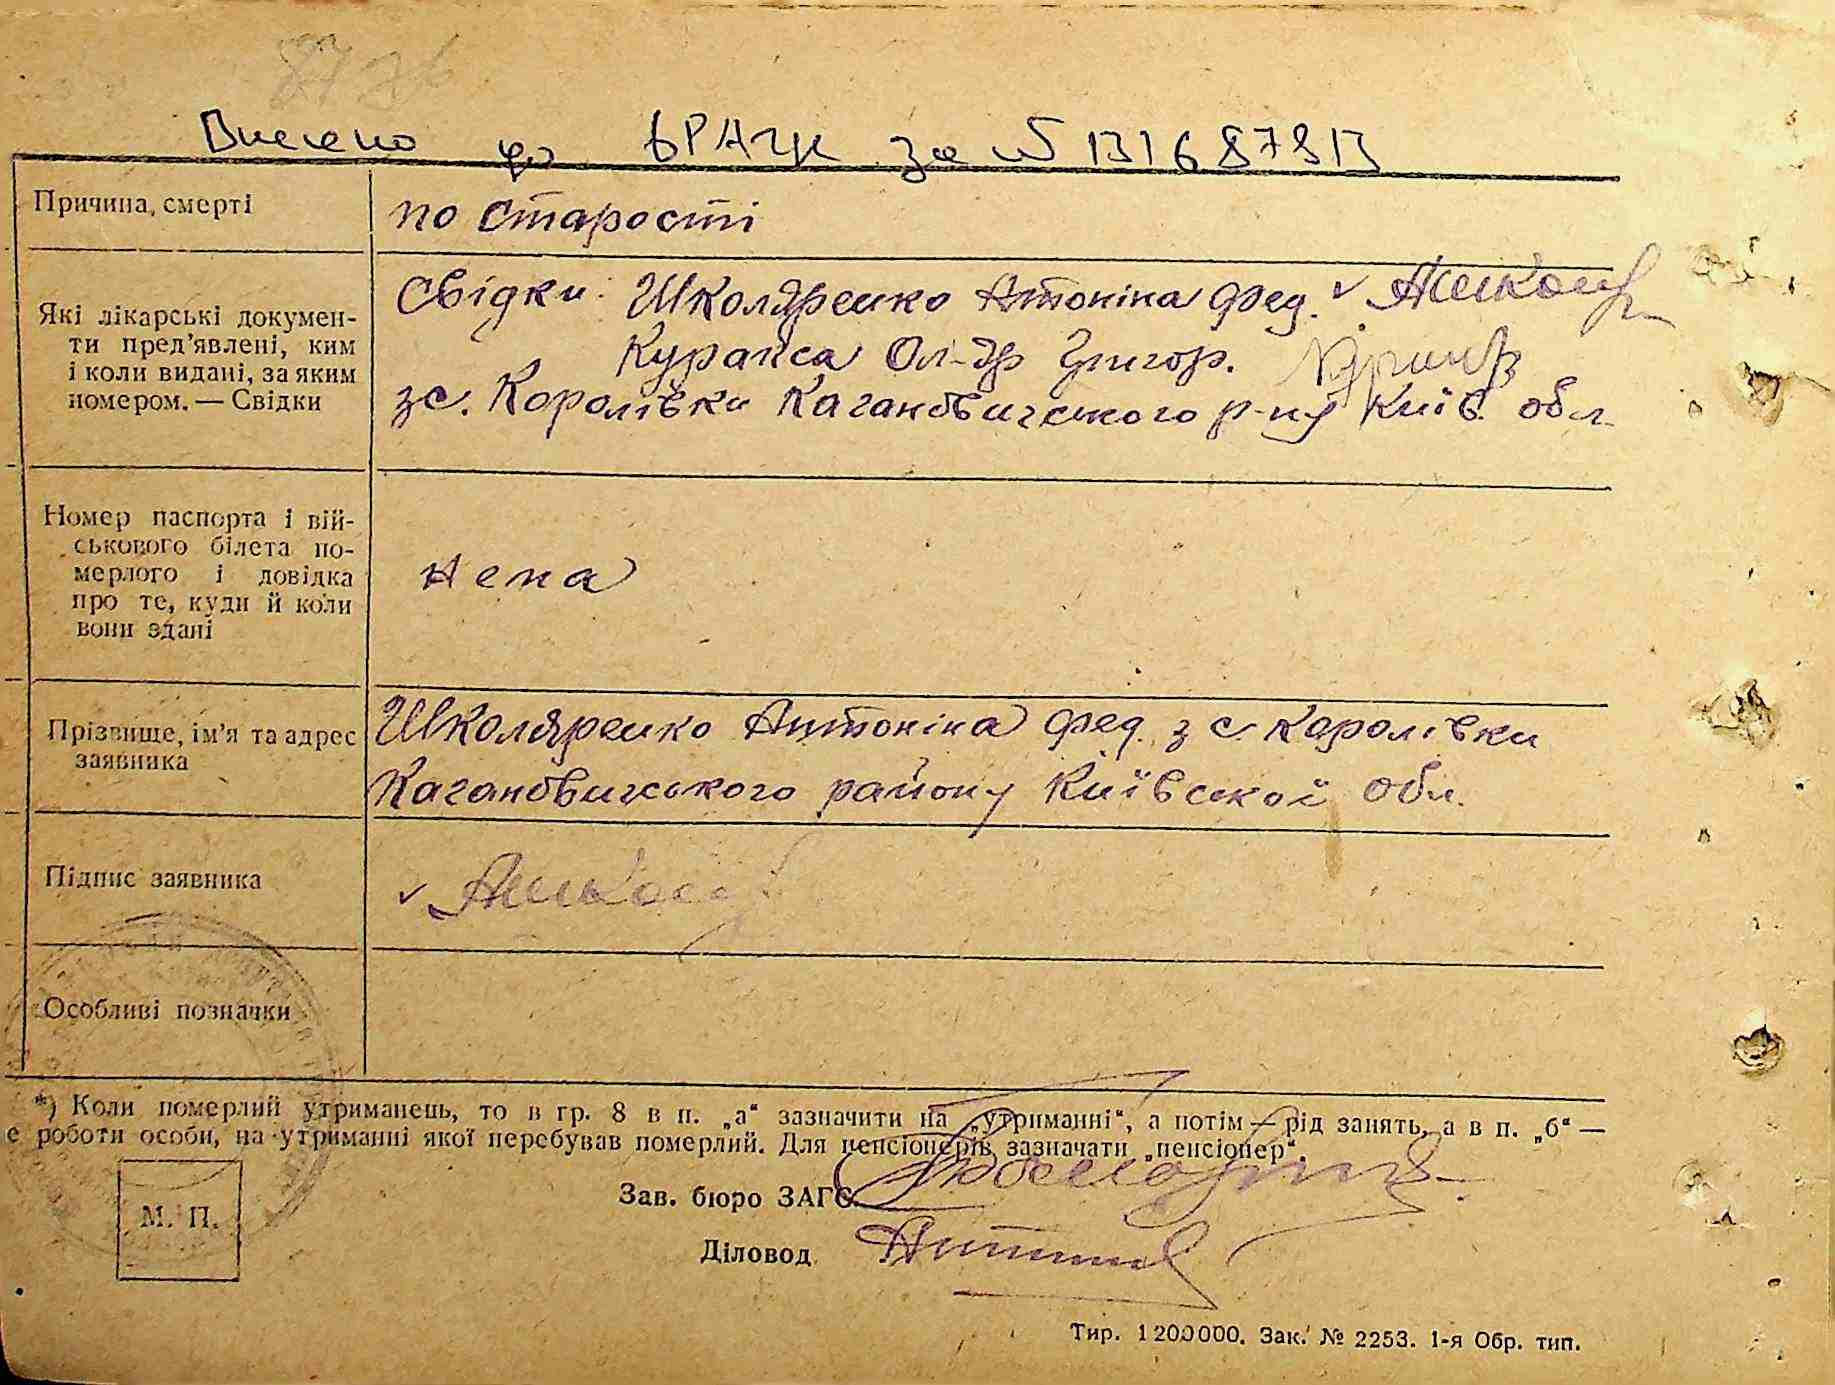 Внесено до ДРАЦС за №
Причина смерті
по старості
Які лікарські докумен-
ти пред'явлені, ким
і коли видані, за яким
номером. — Свідки
Свідки: Школяренко Антоніна Фед. v
Ол-др Григор.
з с. Королівки Кагановичського р-ну Київ. обл.
Номер паспорта і вій-
ськового білета по-
мерлого і довідка
про те, куди й коли
вони здані
нема
Прізвище, ім'я та адрес
заявника
Школяренко Антоніна Фед. з с Королівки
Кагановичського району Київської обл.
Підпис заявника
v
Особливі позначки
*) Коли померлий утриманець, то в гр. 8 в п. „а“ зазначити на „утриманні“, а потім — рід занять, а в п. „б“ —
е роботи особи, на утриманні якої перебував померлий. Для пенсіонерів зазначати „пенсіонер“.
М. П.
Зав. бюро ЗАГС
Діловод
Тир. 1200000. Зак. № 2253. 1-я Обр. тип.